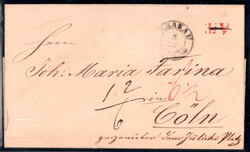 KRAKAU
Herrn
Joh: Maria Farina
in
Cöln
gegenüber dem Jülichs Platz